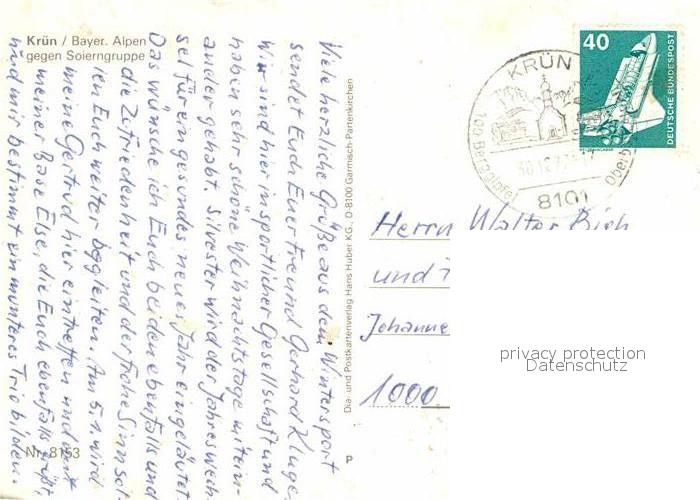 Krün / Bayer. Alpen
gegen Soierngruppe
Viele herzliche Grüße aus dem Wintersport
sendet Euch Euer Freund Gerhard Kluge,
Wir sind hier in sportlicher Gesellschaft und
haben sehr schöne Weihnachtstage mitein-
ander gehabt. Silvester wird der Jahreswech-
sel für ein gesundes neues Jahr eingeläutet
Das wünsche ich Euch beiden ebenfalls und
die Zufriedenheit und der frohe Sinn sol-
len Euch weiter begleiten. Am 5.1. wird
meine Gertrud hier eintreffen und mit
meiner Base Else, die Euch ebenfalls grüßt,
und mir bestimmt ein munteres Trio bilden.
Nr. 8153
Dia- und Postkartenverlag Hans Huber KG., D-8100 Garmisch-Partenkirchen
P
KRÜN
8101
40
DEUTSCHE BUNDESPOST
Herrn Walter
und
Johanne
1000
privacy protection
Datenschutz